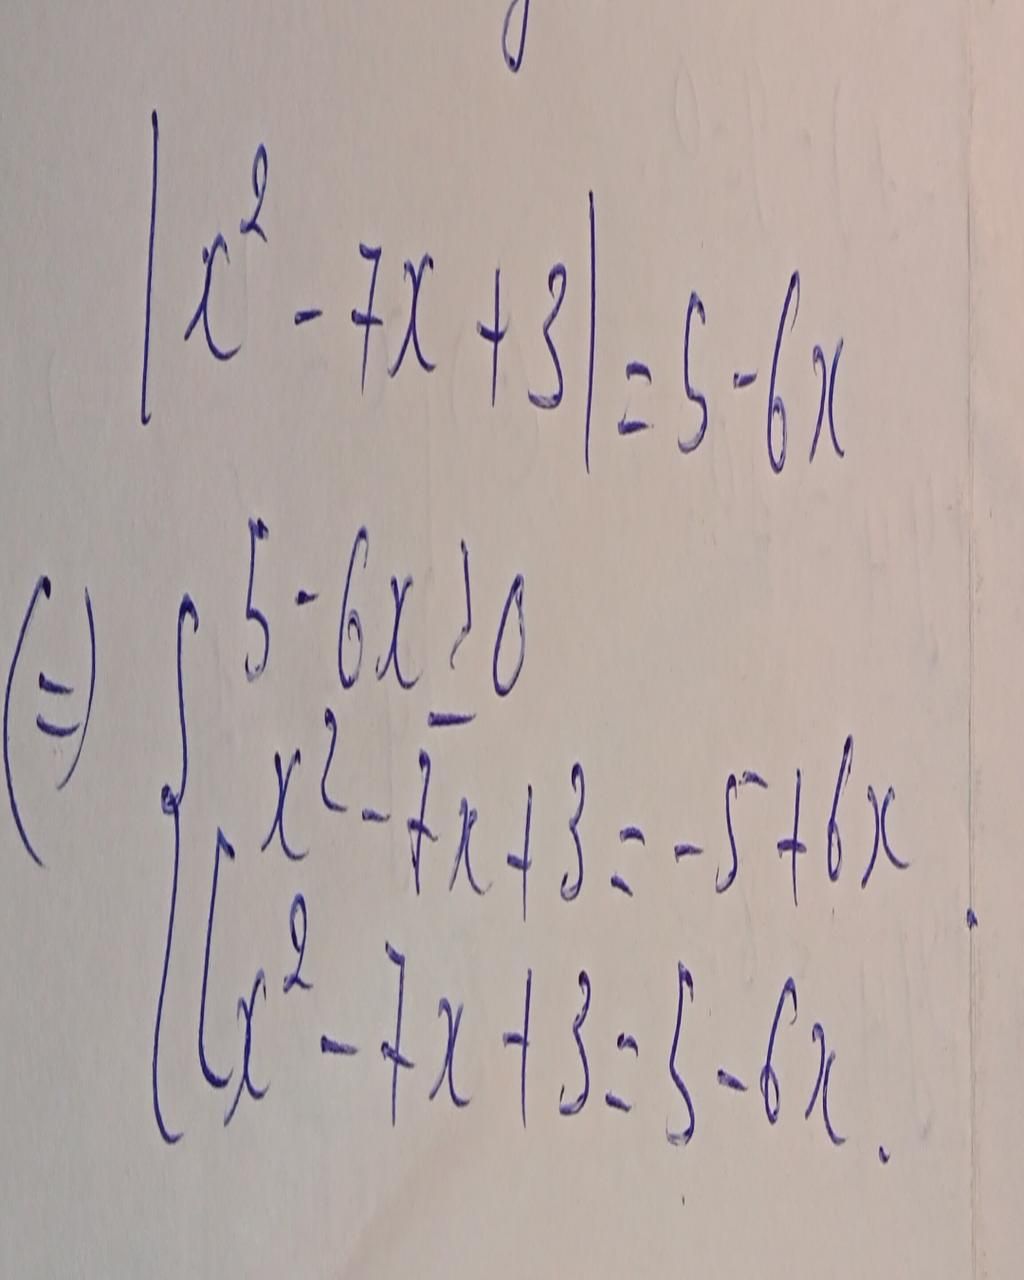 |x² - 7x + 3| = 5 - 6x
(=) { 5 - 6x ≥ 0
x² - 7x + 3 = -5 + 6x
[ x² - 7x + 3 = 5 - 6x.